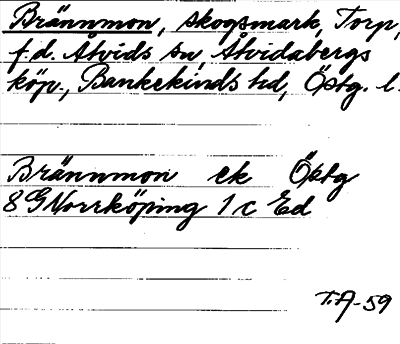 Brännmon, skogsmark, Torp,
f.d. Åtvids sn, Åtvidabergs
köp., Bankekinds hd, Östg. l.
Brännmon ek Östg
8G Norrköping 1c Ed
T.A-59